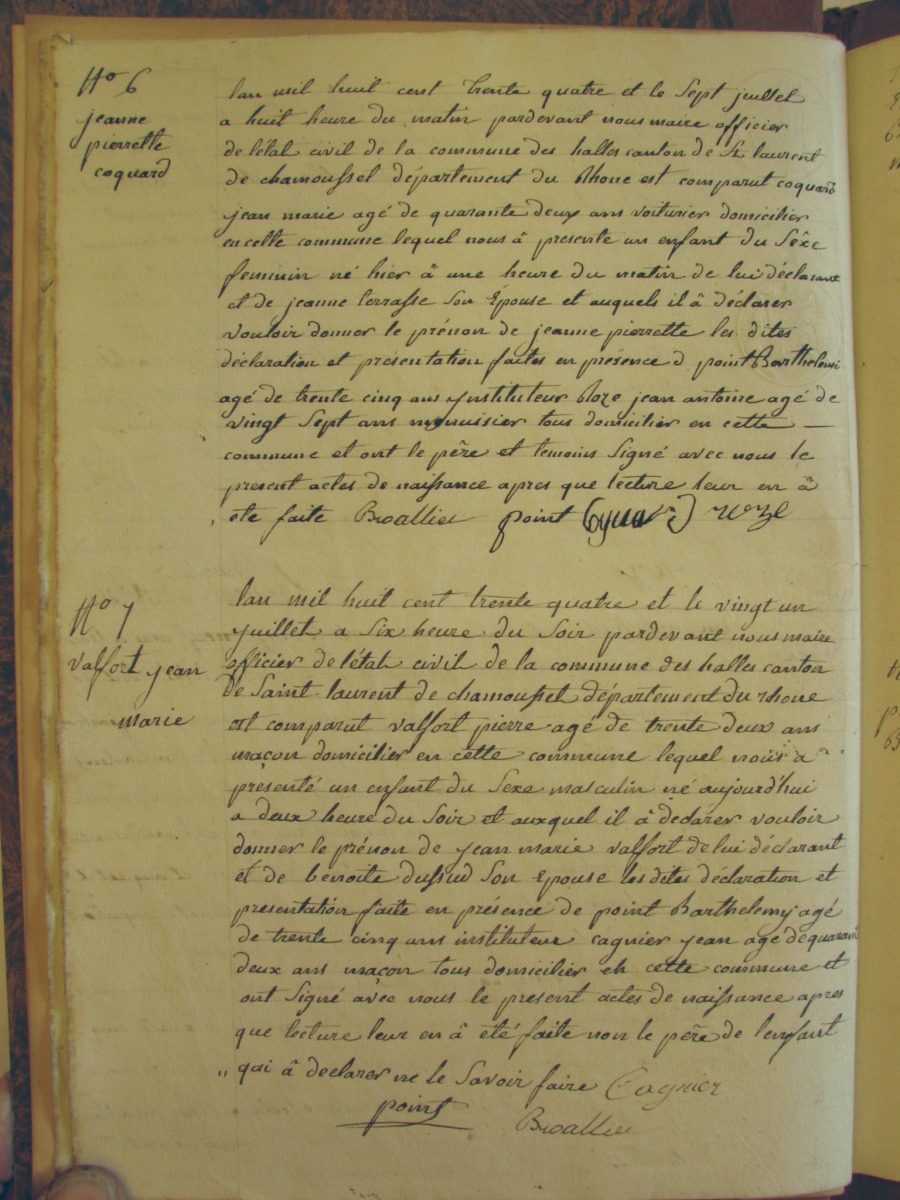 N° 6
jeanne
pierrette
coquard
lan mil huit cent trente quatre et le Sept juillet
a huit heure du matin pardevant nous maire officier
de l'état civil de la commune des halles canton de St laurent
de chamousset département du Rhone est comparut coquard
jean marie agé de quarante deux ans voiturier domicilier
en cette commune lequel nous â presente un enfant du Sêxe
feminin né hier â une heure du matin de lui déclarant
et de jeanne terrasse Son Épouse et auquels il â déclarer
vouloir donner le prénon de jeanne pierrette les dites
déclaration et presentation faites en présence d point Barthelemi
agé de trente cinq ans ynstituteur Roze jean antoine agé de
vingt Sept ans menuisier tous domicilier en cette
commune et ont le père et temoins Signé avec nous le
present actes de naissance apres que lecture leur en â
ete faite point Coquard roze
N° 7
valfort jean
marie
lan mil huit cent trente quatre et le vingt un
juillet a Six heure du Soir pardevant nous maire
officier de l'état civil de la commune des halles canton
de Saint laurent de chamousset département du rhone
est comparut valfort pierre agé de trente deux ans
maçon domicilier en cette commune lequel nous a
presenté un enfant du Sexe masculin né aujourd'hui
a deux heure du Soir et auxquel il â declarer vouloir
donner le prénon de jean marie valfort de lui déclarant
et de benoite dussud Son Epouse les dites declaration et
presentation faite en présence de point Barthelemy agé
de trente cinq ans instituteur cagnier jean agé de quarant
deux ans maçon tous domicilier en cette commune et
ont Signé avec nous le present actes de naissance apres
que lecture leur en â eté faite non le père de l'enfant
qui â declarer ne le Savoir faire Cagnier
point